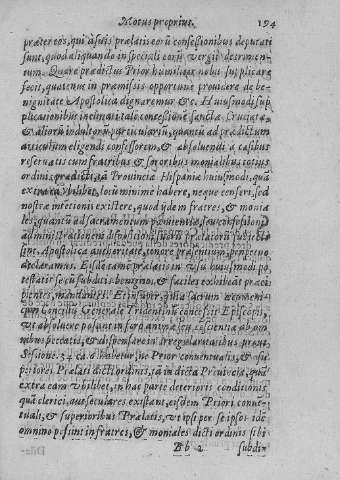 Motus proprius. 194
præter eos, qui à suis prælatis eorũ confessionibus deputati
sunt, quod aliquando in speciali eorũ vergit detrimen-
tum. Quare prædictus Prior humiliter nobis supplicare
fecit, quatenus in præmissis opportune providere de be-
nignitate Apostolica dignaremur &c. Huiusmodi sup
plicationibus inclinati, tale concessionẽ sanctæ Cruciatæ
& aliorũ indultorũ particulariũ, quantũ ad prædictum
articulum eligendi confessorem, & absolvendi a casibus
reservatis cum fratribus & sororibus monialibus totius
ordinis prædicti, tã Provinciæ Hispaniæ huiusmodi, quã
extra eã vbilibet, locũ minime habere, neque censeri, sed
nostræ intentionis existere, quod ijdem fratres, & monia
les, quantũ ad sacramentum pœnitentiæ, seu confessionũ
administrationem dispositioni suorũ Prælatorũ subiecti
sint, Apostolica authoritate, tenore præsentium, perpetuo
declaramus. Eisdẽ tamẽ prælatis in vsu huiusmodi po
testatis se eis subditis benignos, & faciles exhibeãt præci
pientes, mandantes. Et insuper, quia sacrum œcumeni-
cum Concilium Generale Tridentinũ concessit Episcopis,
vt absoluere possint in foro animæ seu conscientiæ ab om
nibus peccatis, & dispensare in irregularitatibus prout
Sessione. 24. ca. 6. habetur, ne Prior conuentualis, & su-
periores Prælati dicti ordinis, tã in dicta Prouincia, quã
extra eam vbilibet, in hac parte deterioris conditionis,
quã clerici, aut seculares existant, eisdem Priori conuẽ-
tuali, & superioribus Prælatis, vt ipsi per se ipsos idẽ
omnino possint in fratres, & moniales dicti ordinis sibi
Bb 2 subdi-